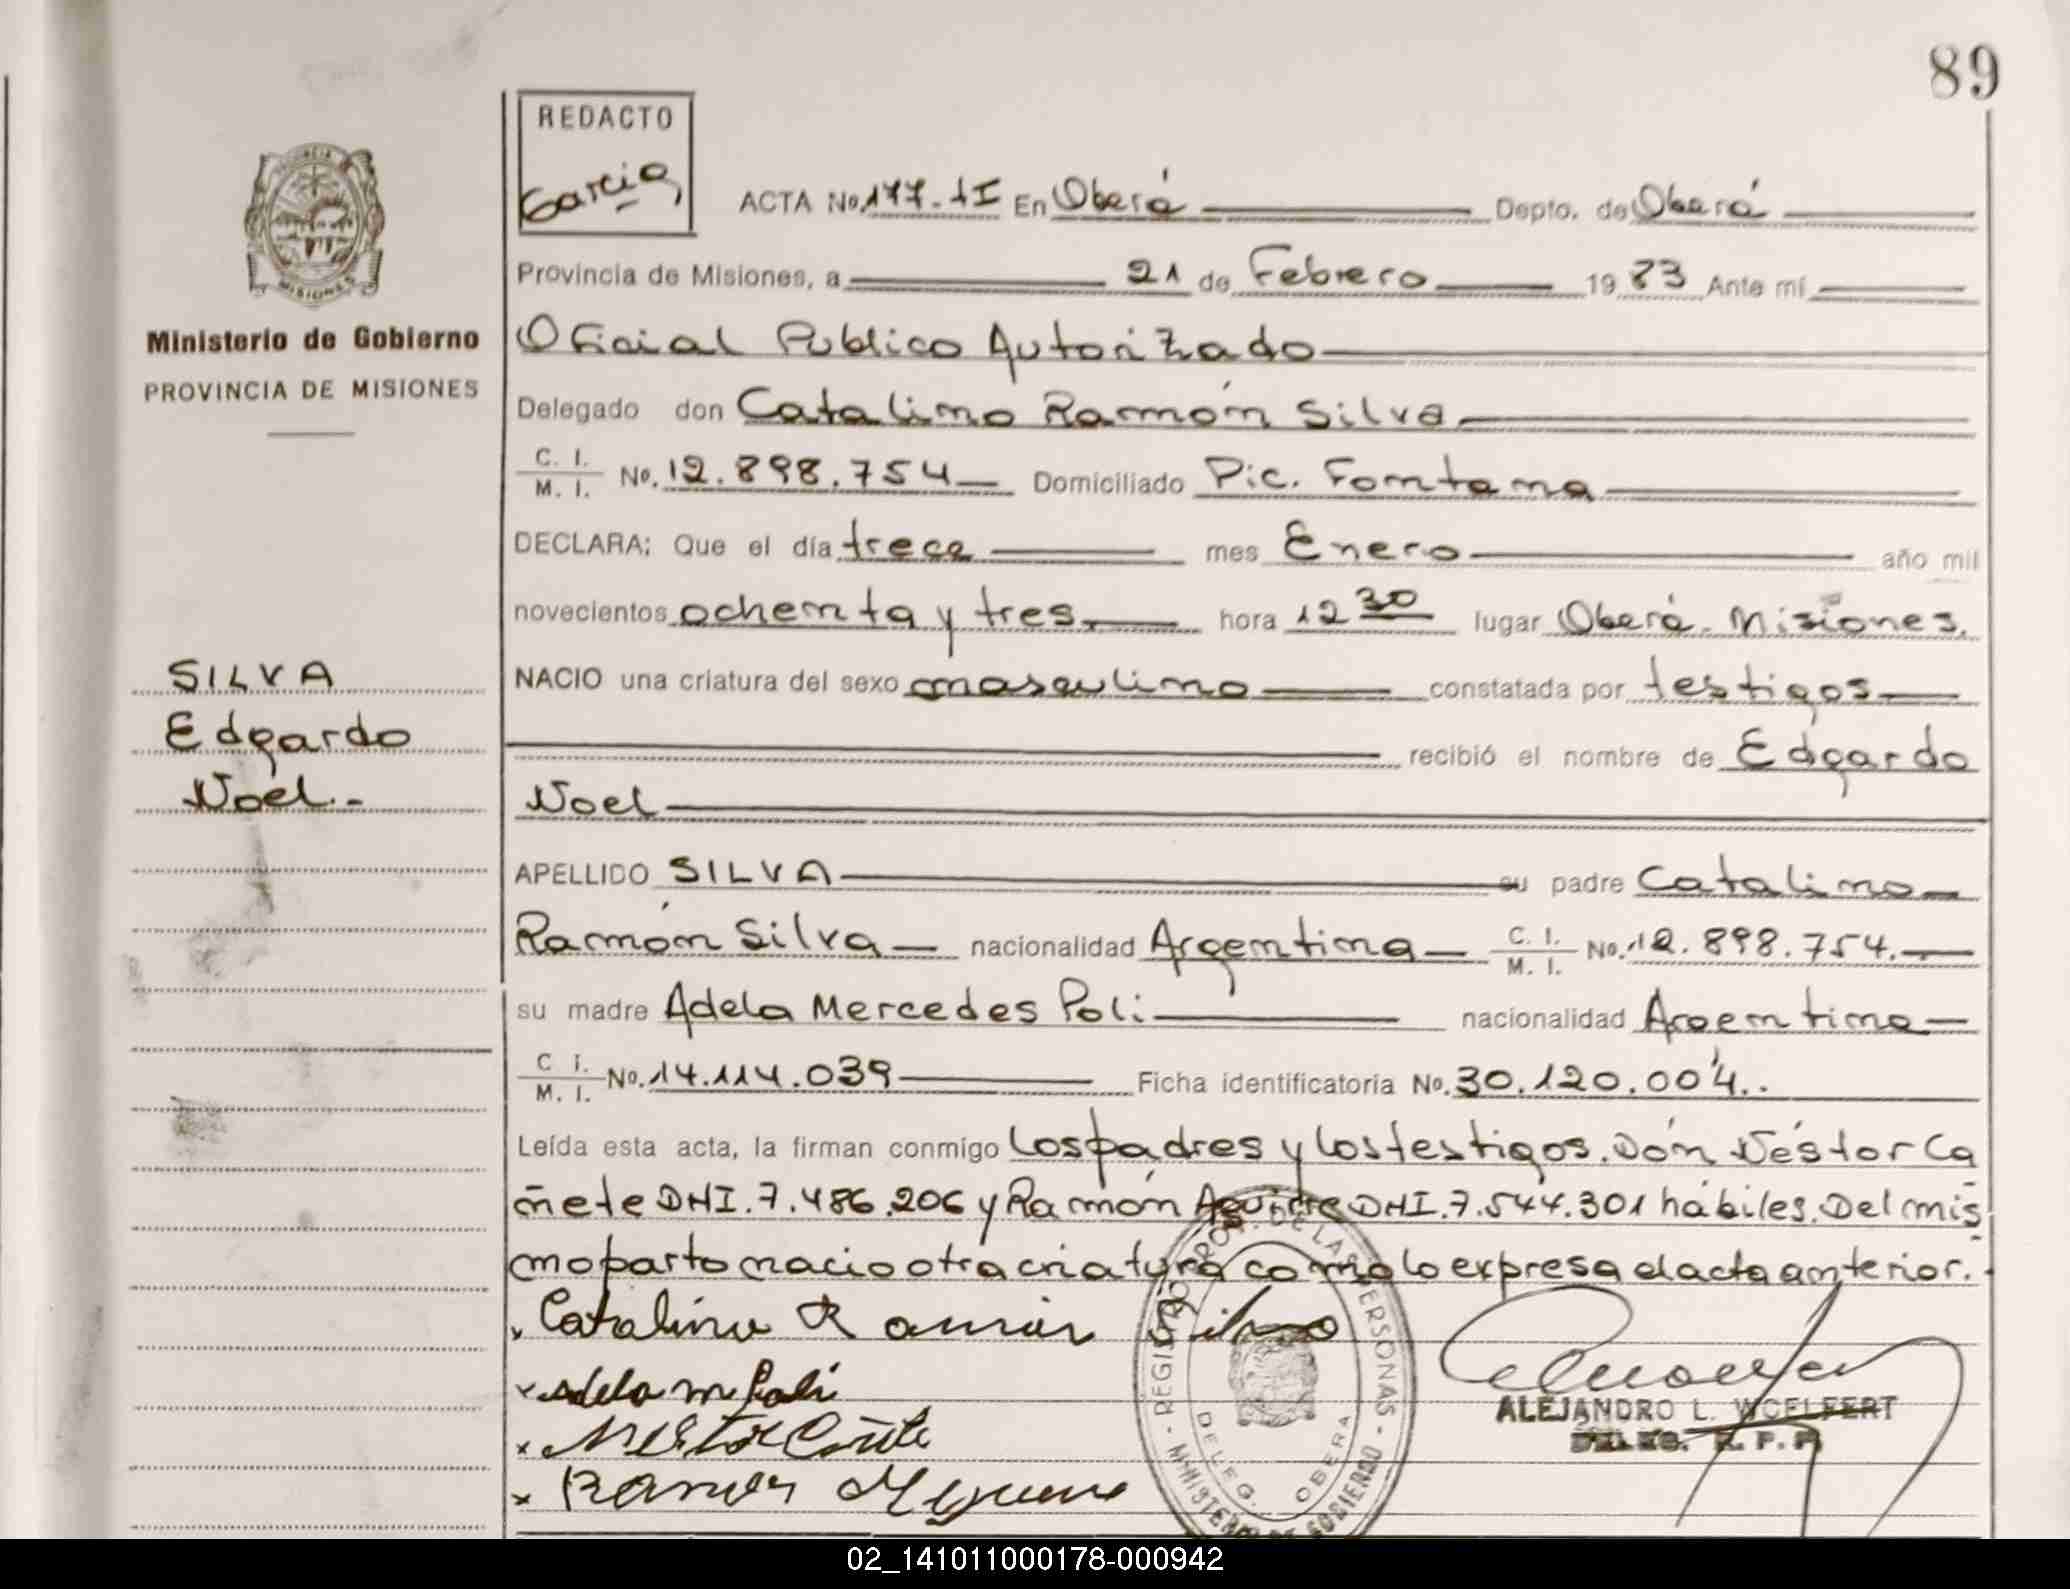 89
REDACTO
Garcia
PROVINCIA
MISIONES
Ministerio de Gobierno
PROVINCIA DE MISIONES
ACTA No. 177-tI En Oberá Depto. de Oberá
Provincia de Misiones, a 21 de Febrero 1983 Ante mí
Oficial Publico Autorizado
Delegado don Catalino Ramón Silva
C. I. / M. I. No. 12.898.754 Domiciliado Pic. Fontana
DECLARA: Que el día trece mes Enero año mil
novecientos ochenta y tres hora 12 30 lugar Oberá. Misiones.
NACIO una criatura del sexo masculino constatada por testigos
recibió el nombre de Edgardo
Noel
SILVA
Edgardo
Noel.-
APELLIDO SILVA su padre Catalino
Ramón Silva nacionalidad Argentina C. I. / M. I. No. 12.898.754.
su madre Adela Mercedes Poli nacionalidad Argentina
C I. / M. I. No. 14.114.039 Ficha identificatoria No. 30.120.004..
Leída esta acta, la firman conmigo los padres y los testigos. Dón Néstor Ca
ñete DNI. 7.486.206 y Ramón Aguirre DNI. 7.544.301 hábiles. Del mis
mo parto nacio otra criatura como lo expresa el acta anterior.
Catalino Ramón Silva
x Adela M Poli
x Nestor Cañete
x Ramon
REGISTRO PROV. DE LAS PERSONAS - MINISTERIO DE GOBIERNO
DELEG. OBERA
ALEJANDRO L. WOELFERT
DELEG. R. P. P.
02_141011000178-000942